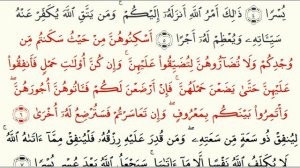 يُسْرًا ﴿٤﴾ ذَٰلِكَ أَمْرُ ٱللَّهِ أَنزَلَهُۥٓ إِلَيْكُمْ ۚ وَمَن يَتَّقِ ٱللَّهَ يُكَفِّرْ عَنْهُ
سَيِّـَٔاتِهِۦ وَيُعْظِمْ لَهُۥٓ أَجْرًا ﴿٥﴾ أَسْكِنُوهُنَّ مِنْ حَيْثُ سَكَنتُم مِّن
وُجْدِكُمْ وَلَا تُضَآرُّوهُنَّ لِتُضَيِّقُوا۟ عَلَيْهِنَّ ۚ وَإِن كُنَّ أُو۟لَـٰتِ حَمْلٍ فَأَنفِقُوا۟
عَلَيْهِنَّ حَتَّىٰ يَضَعْنَ حَمْلَهُنَّ ۚ فَإِنْ أَرْضَعْنَ لَكُمْ فَـَٔاتُوهُنَّ أُجُورَهُنَّ ۖ
وَأْتَمِرُوا۟ بَيْنَكُم بِمَعْرُوفٍ ۖ وَإِن تَعَاسَرْتُمْ فَسَتُرْضِعُ لَهُۥٓ أُخْرَىٰ ﴿٦﴾
لِيُنفِقْ ذُو سَعَةٍ مِّن سَعَتِهِۦ ۖ وَمَن قُدِرَ عَلَيْهِ رِزْقُهُۥ فَلْيُنفِقْ مِمَّآ ءَاتَىٰهُ ٱللَّهُ ۚ
لَا يُكَلِّفُ ٱللَّهُ نَفْسًا إِلَّا مَآ ءَاتَىٰهَا ۚ سَيَجْعَلُ ٱللَّهُ بَعْدَ عُسْرٍ يُسْرًا